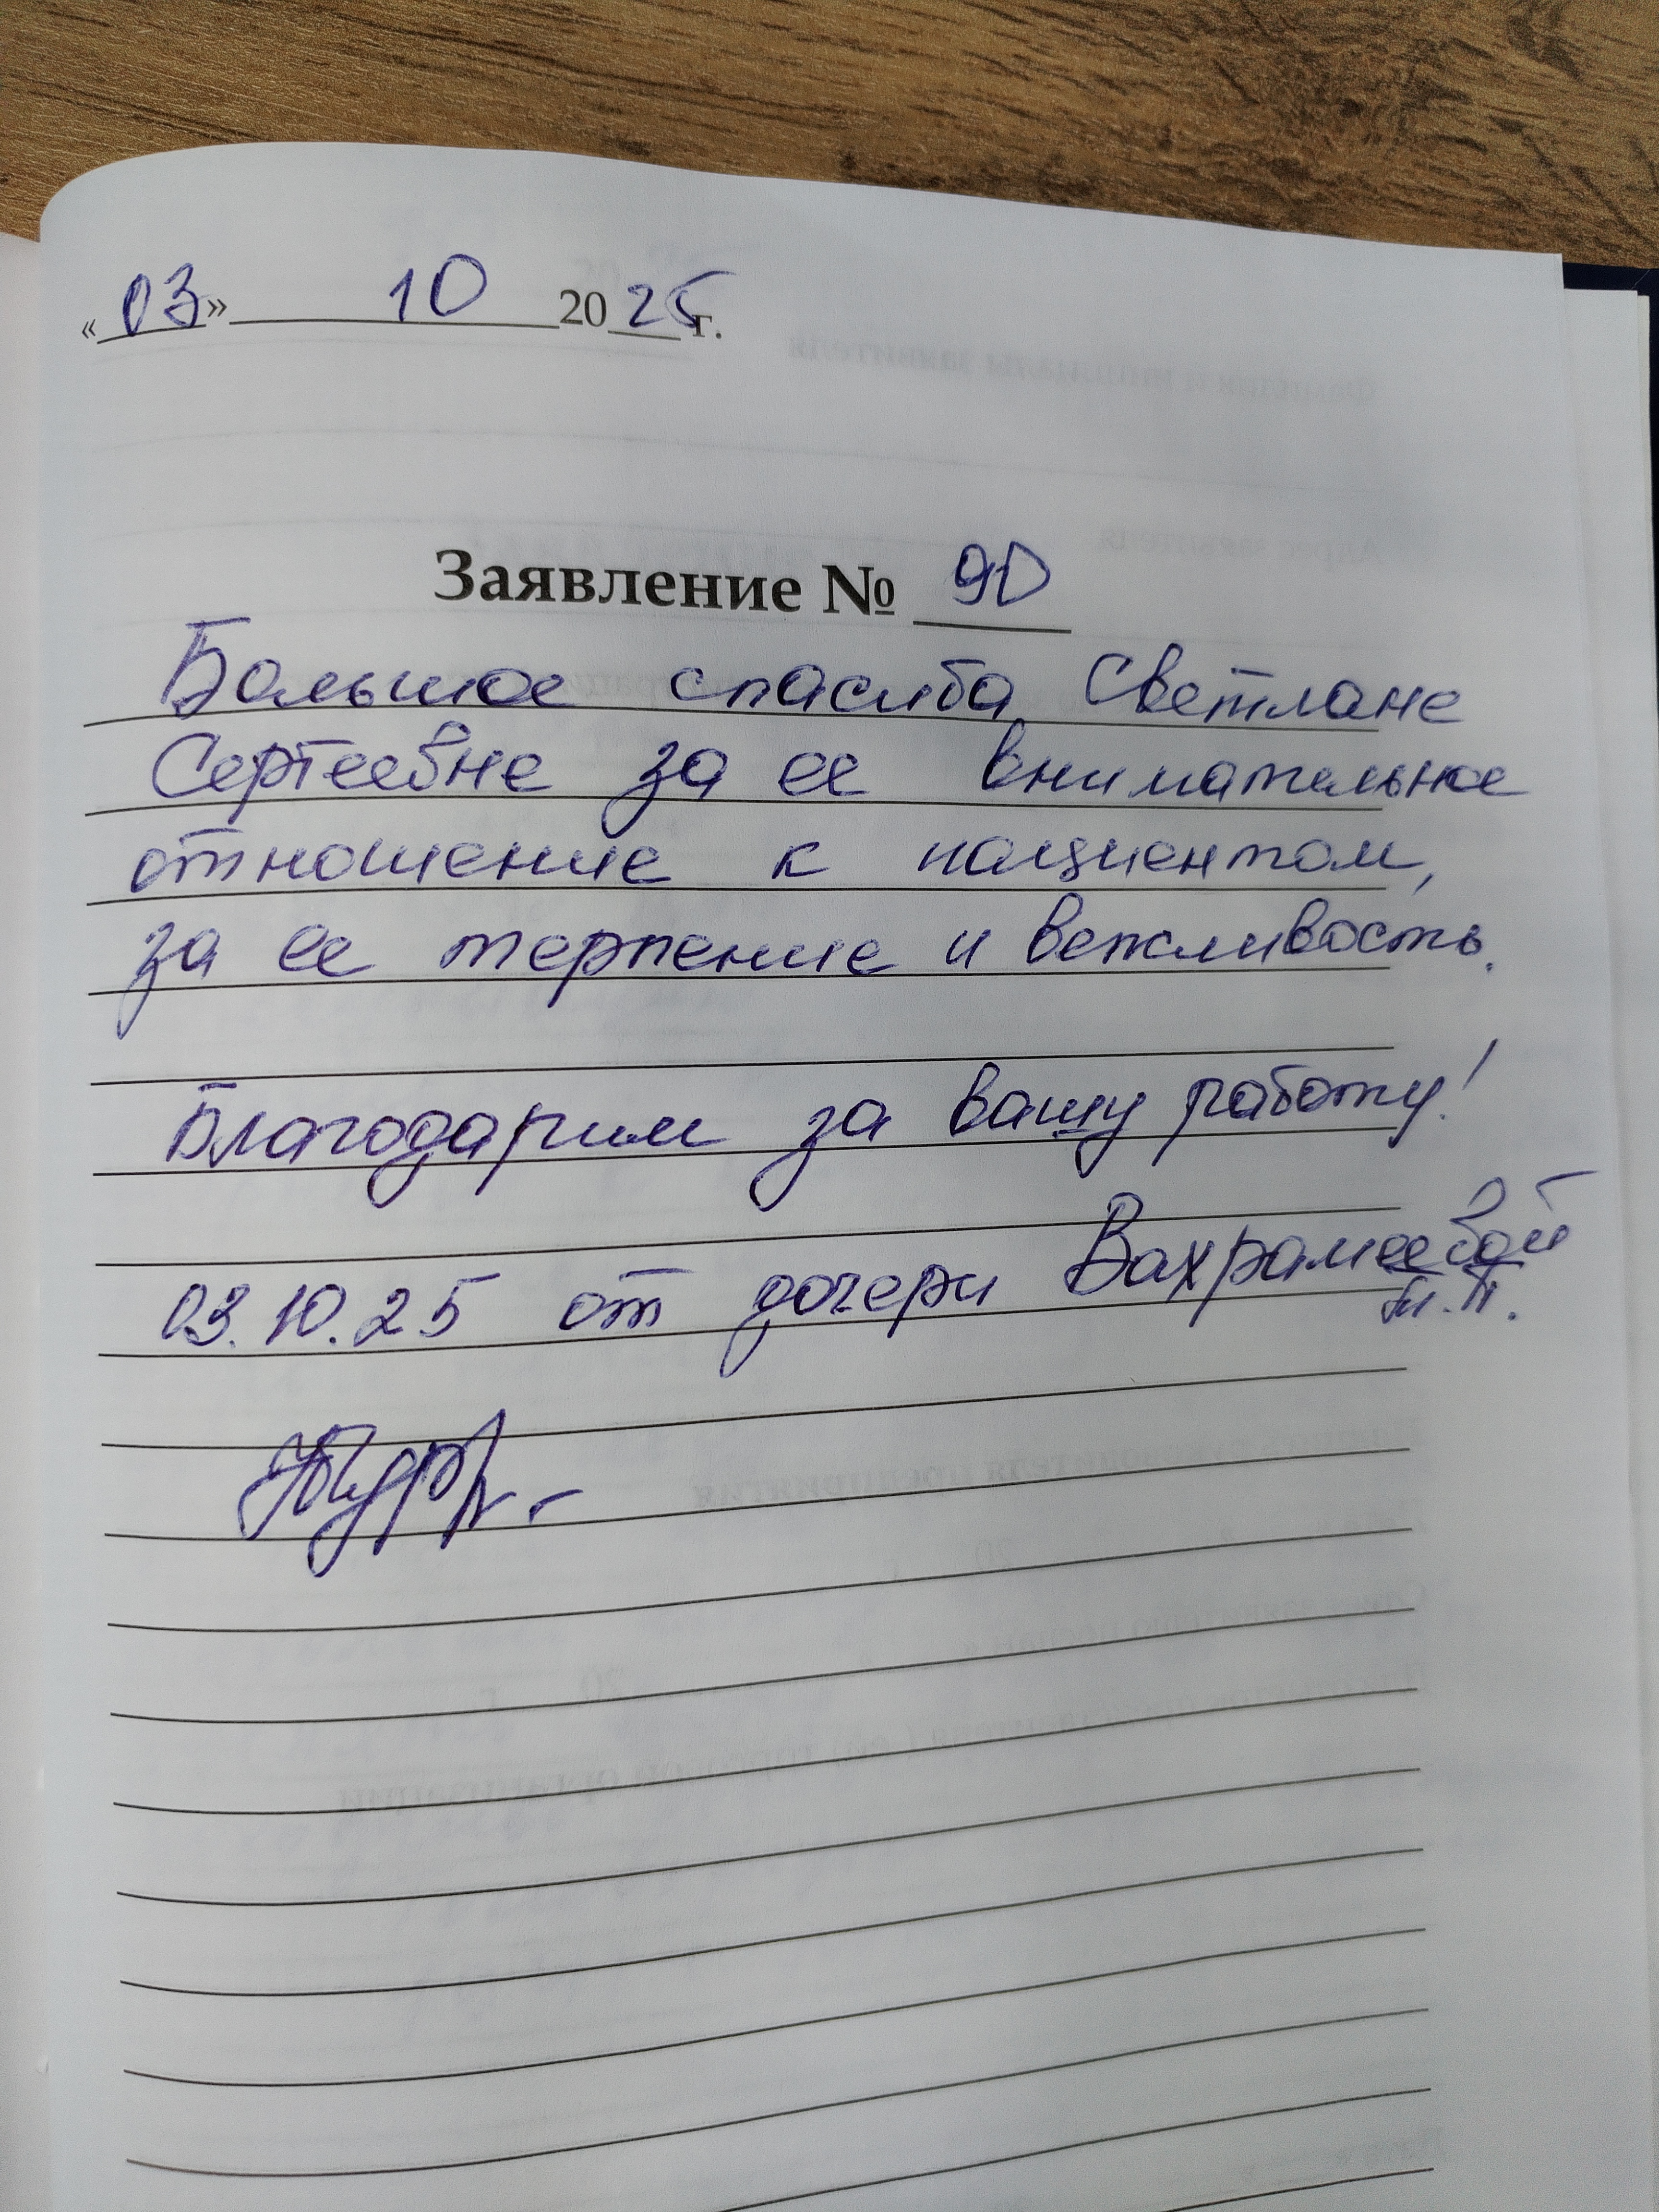 «03» 10 2025г.
Заявление № 90
Большое спасибо Светлане
Сергеевне за ее внимательное
отношение к пациентам,
за ее терпение и вежливость.
Благодарим за вашу работу!
03.10.25 от дочери Вахрамеевой